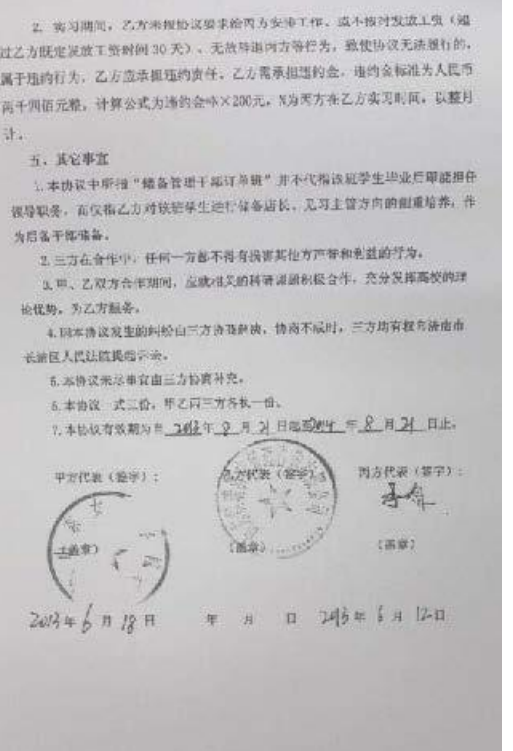 2. 实习期间，乙方未按协议要求给丙方安排工作、或不按时发放工资（超
过乙方既定发放工资时间30天）、无故辱退丙方等行为，致使协议无法履行的，
属于违约行为，乙方应承担违约责任。乙方需承担违约金，违约金标准为人民币
两千四佰元整，计算公式为违约金=N×200元，N为丙方在乙方实习时间，以整月
计。
五、其它事宜
1.本协议中所指“储备管理干部订单班”并不代指该班学生毕业后即能担任
领导职务，而仅指乙方对该班学生进行储备店长、见习主管方向的侧重培养，作
为后备干部储备。
2.三方在合作中，任何一方都不得有损害其他方声誉和利益的行为。
3.甲、乙双方合作期间，应就相关的科研课题积极合作，充分发挥高校的理
论优势，为乙方服务。
4.因本协议发生的纠纷由三方协商解决，协商不成时，三方均有权向济南市
长清区人民法院提起诉讼。
5.本协议未尽事宜由三方协商补充。
6.本协议一式三份，甲乙丙三方各执一份。
7.本协议有效期为自 2013 年 8 月 21 日起至 2014 年 8 月 21 日止。
甲方代表（签字）： 乙方代表（签字） 丙方代表（签字）：
（盖章） （盖章） （盖章）
2013年6月18日 年 月 日 2013年6月12日